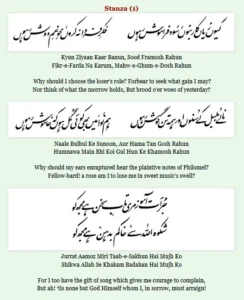 Stanza (1)
کیوں زیاں کار بنوں، سود فراموش رہوں
فکر فردا نہ کروں محو غم دوش رہوں
Kyun Ziyaan Kaar Banun, Sood Framosh Rahun
Fikr-e-Farda Na Karum, Mahw-e-Ghum-e-Dosh Rahun
Why should I choose the loser's role? Forbear to seek what gain I may?
Nor think of what the morrow holds, But brood o'er woes of yesterday?
نالے بلبل کے سنوں اور ہمہ تن گوش رہوں
ہم نوا میں بھی کوئی گل ہوں کہ خاموش رہوں
Naale Bulbul Ke Sunoon, Aur Hama Tan Gosh Rahun
Humnawa Main Bhi Koi Gul Hun Ke Khamosh Rahun
Why should my ears enraptured hear the plaintive notes of Philomel?
Fellow-bard! a rose am I to lose me in sweet music's swell?
جرأت آموز مری تاب سخن ہے مجھ کو
شکوہ اللہ سے خاکم بدہن ہے مجھ کو
Jurrat Aamoz Miri Taab-e-Sakhun Hai Mujh Ko
Shikwa Allah Se Khakam Badahan Hai Mujh Ko
For I too have the gift of song which gives me courage to complain,
But ah! 'tis none but God Himself whom I, in sorrow, must arraign!